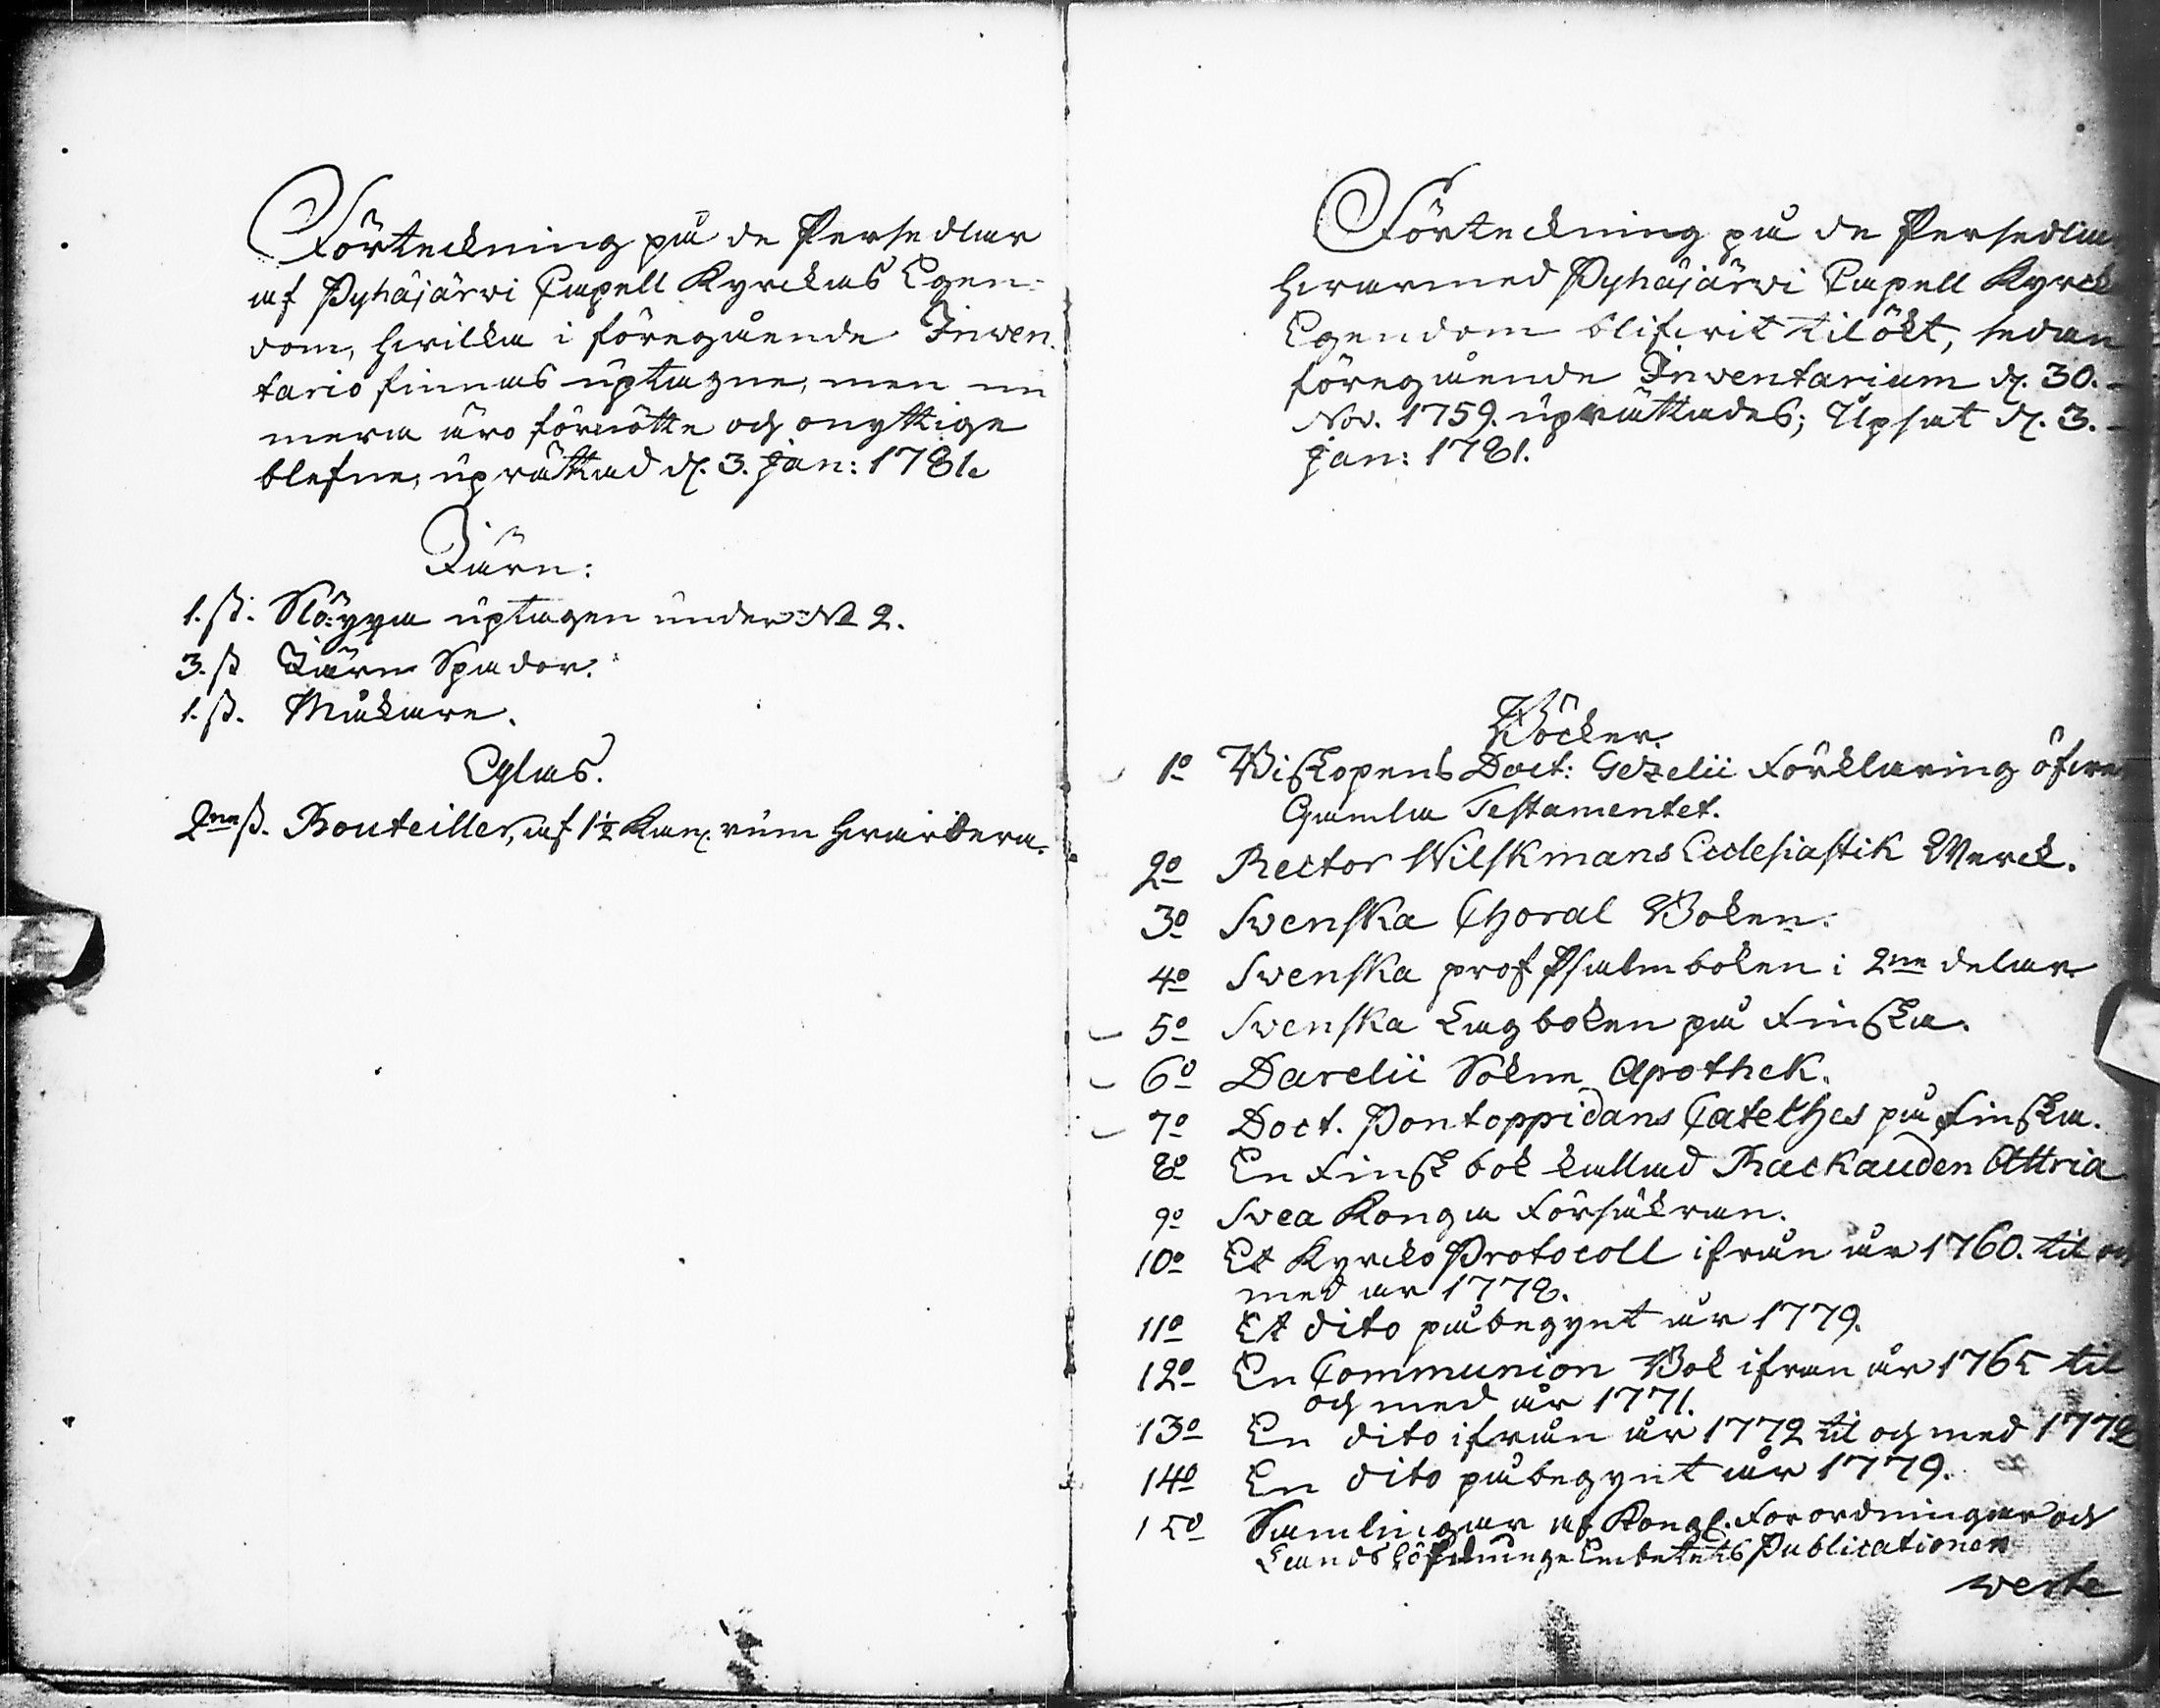 Förteckning på de Persedlar
af Pyhäjärwi Capell Kyrckas Egen-
dom, hwilka i föregående Inwen-
tario finnas uptagne, men nu
mera äro förnötte och onyttige
blefne, uprättad d. 3. Jan: 1781.
Järn:
1. st. Slögga uptagen under № 2.
3. st Järn Spador.
1. st. Murkare.
Glas.
2ne st. Bouteiller, af 1½ Kan. rum hwardera.
Förteckning på de Persedlar
hwarmed Pyhäjärwi Capell Kyrck
Egendom blifwit tilökt, sedan
föregående Inventarium d. 30.
Nov. 1759. uprättades; Upsat d. 3.
Jan: 1781.
Böcker.
1o Biskopens Doct: Gezelii Förklaring öfwer
Gamla Testamentet.
2o Rector Wilskmans Ecclesiastik Werck.
3o Swenska Choral Boken.
4o Swenska prof Psalmboken i 2ne delar
5o Swenska Lagboken på Finska.
6o Darelii Sokne Apothek.
7o Doct. Pontoppidans Catethes på Finska.
8o En Finsk bok kallad Rackauden Attria
9o Svea Konga Försäkran.
10o Et Kyrcko Protocoll ifrån år 1760. til och
med år 1778.
11o Et dito påbegynt år 1779.
12o En Communion Bok ifrån år 1765 til
och med år 1771.
13o En dito ifrån år 1772 til och med 1778
14o En dito påbegynt år 1779.
15o Samlingar af Kongl. Förordningar och
Landshöfdinge Embetets Publicationer